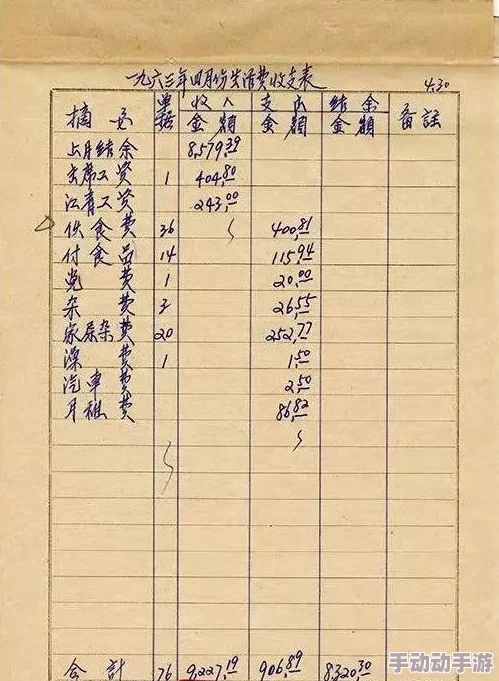 一九六三年四月份生活费收支表 4.30
摘要 单据 收入金额 支出金额 结余金额 备註
上月结余 8,579.39
主席工资 1 404.80
江青工资 243.00
伙食费 36 400.81
付食品 14 115.94
党费 1 20.00
杂费 3 26.55
家居杂费 20 252.77
澡费 1 1.50
汽車费 2.50
月租费 86.82
合計 76 9,227.19 906.89 8320.30
手动动手游